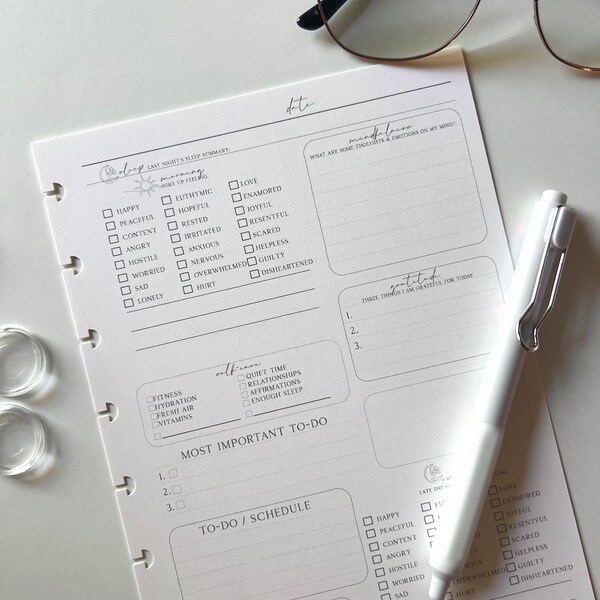 date
sleep LAST NIGHT'S SLEEP SUMMARY:
morning
WOKE UP FEELING:
HAPPY
PEACEFUL
CONTENT
ANGRY
HOSTILE
WORRIED
SAD
LONELY
EUTHYMIC
HOPEFUL
RESTED
IRRITATED
ANXIOUS
NERVOUS
OVERWHELMED
HURT
LOVE
ENAMORED
JOYFUL
RESENTFUL
SCARED
HELPLESS
GUILTY
DISHEARTENED
mindfulness
WHAT ARE SOME THOUGHTS & EMOTIONS ON MY MIND?
gratitude
THREE THINGS I AM GRATEFUL FOR TODAY
1.
2.
3.
self-care
FITNESS
HYDRATION
FRESH AIR
VITAMINS
QUIET TIME
RELATIONSHIPS
AFFIRMATIONS
ENOUGH SLEEP
MOST IMPORTANT TO-DO
1.
2.
3.
TO-DO / SCHEDULE
LATE DAY
HAPPY
PEACEFUL
CONTENT
ANGRY
HOSTILE
WORRIED
SAD
LOVE
ENAMORED
JOYFUL
RESENTFUL
SCARED
HELPLESS
GUILTY
DISHEARTENED